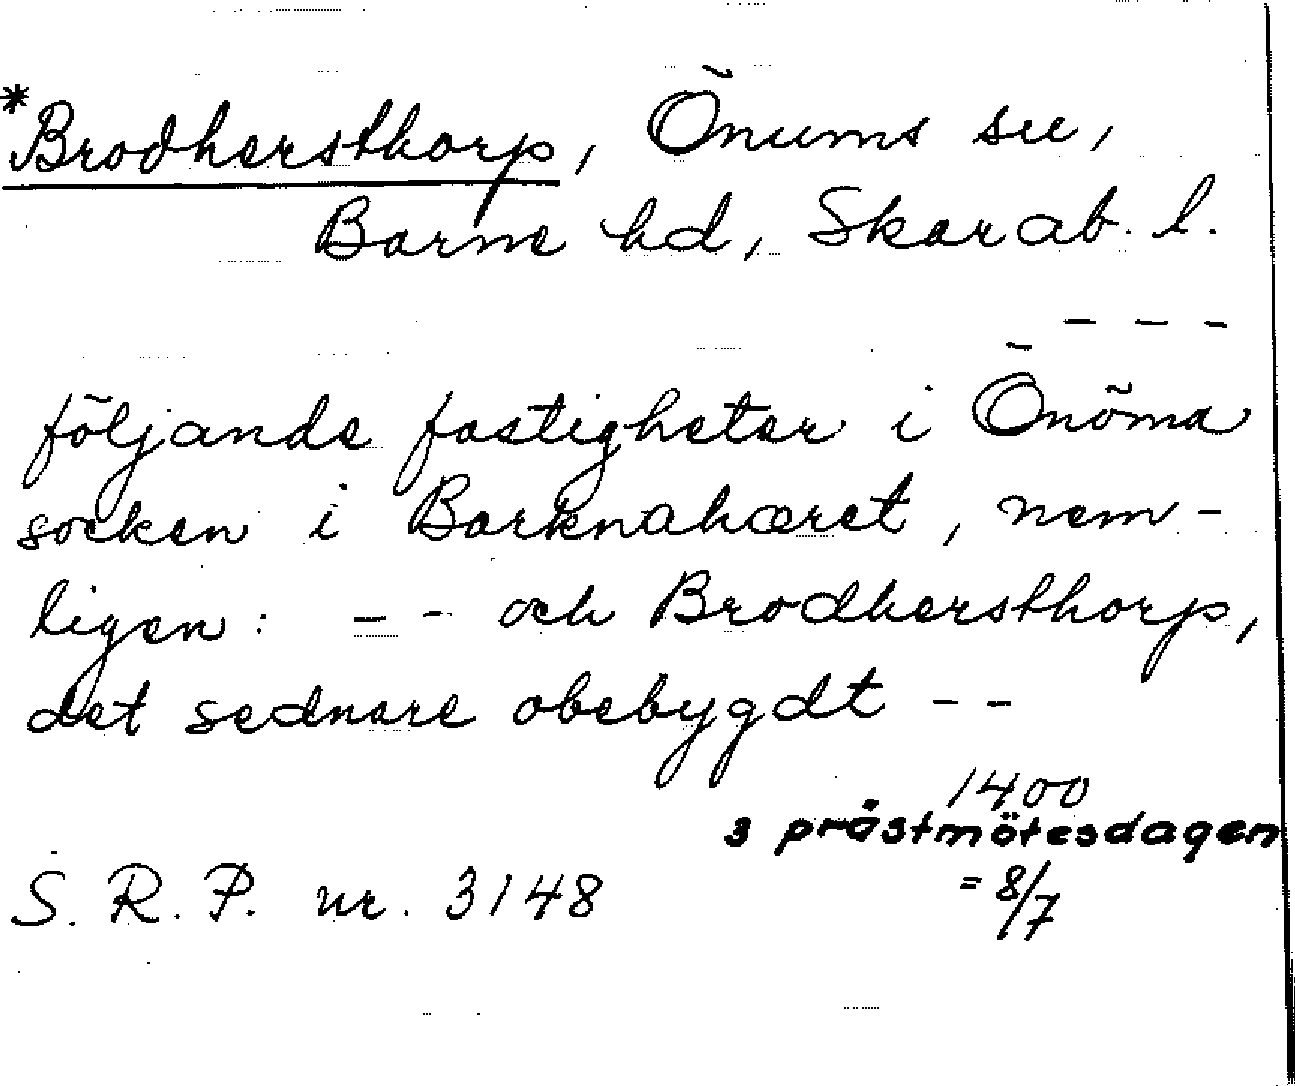 *Brodhersthorp, Önums sn,
Barne hd, Skarab. l.
- - -
följande fastigheter i Önöma
socken i Barknahæret, nem-
ligen: - - och Brodhersthorp,
det sednare obebygdt - -
1400
3 präs​tmötesdagen
S. R. P. nr. 3148 = 8/7